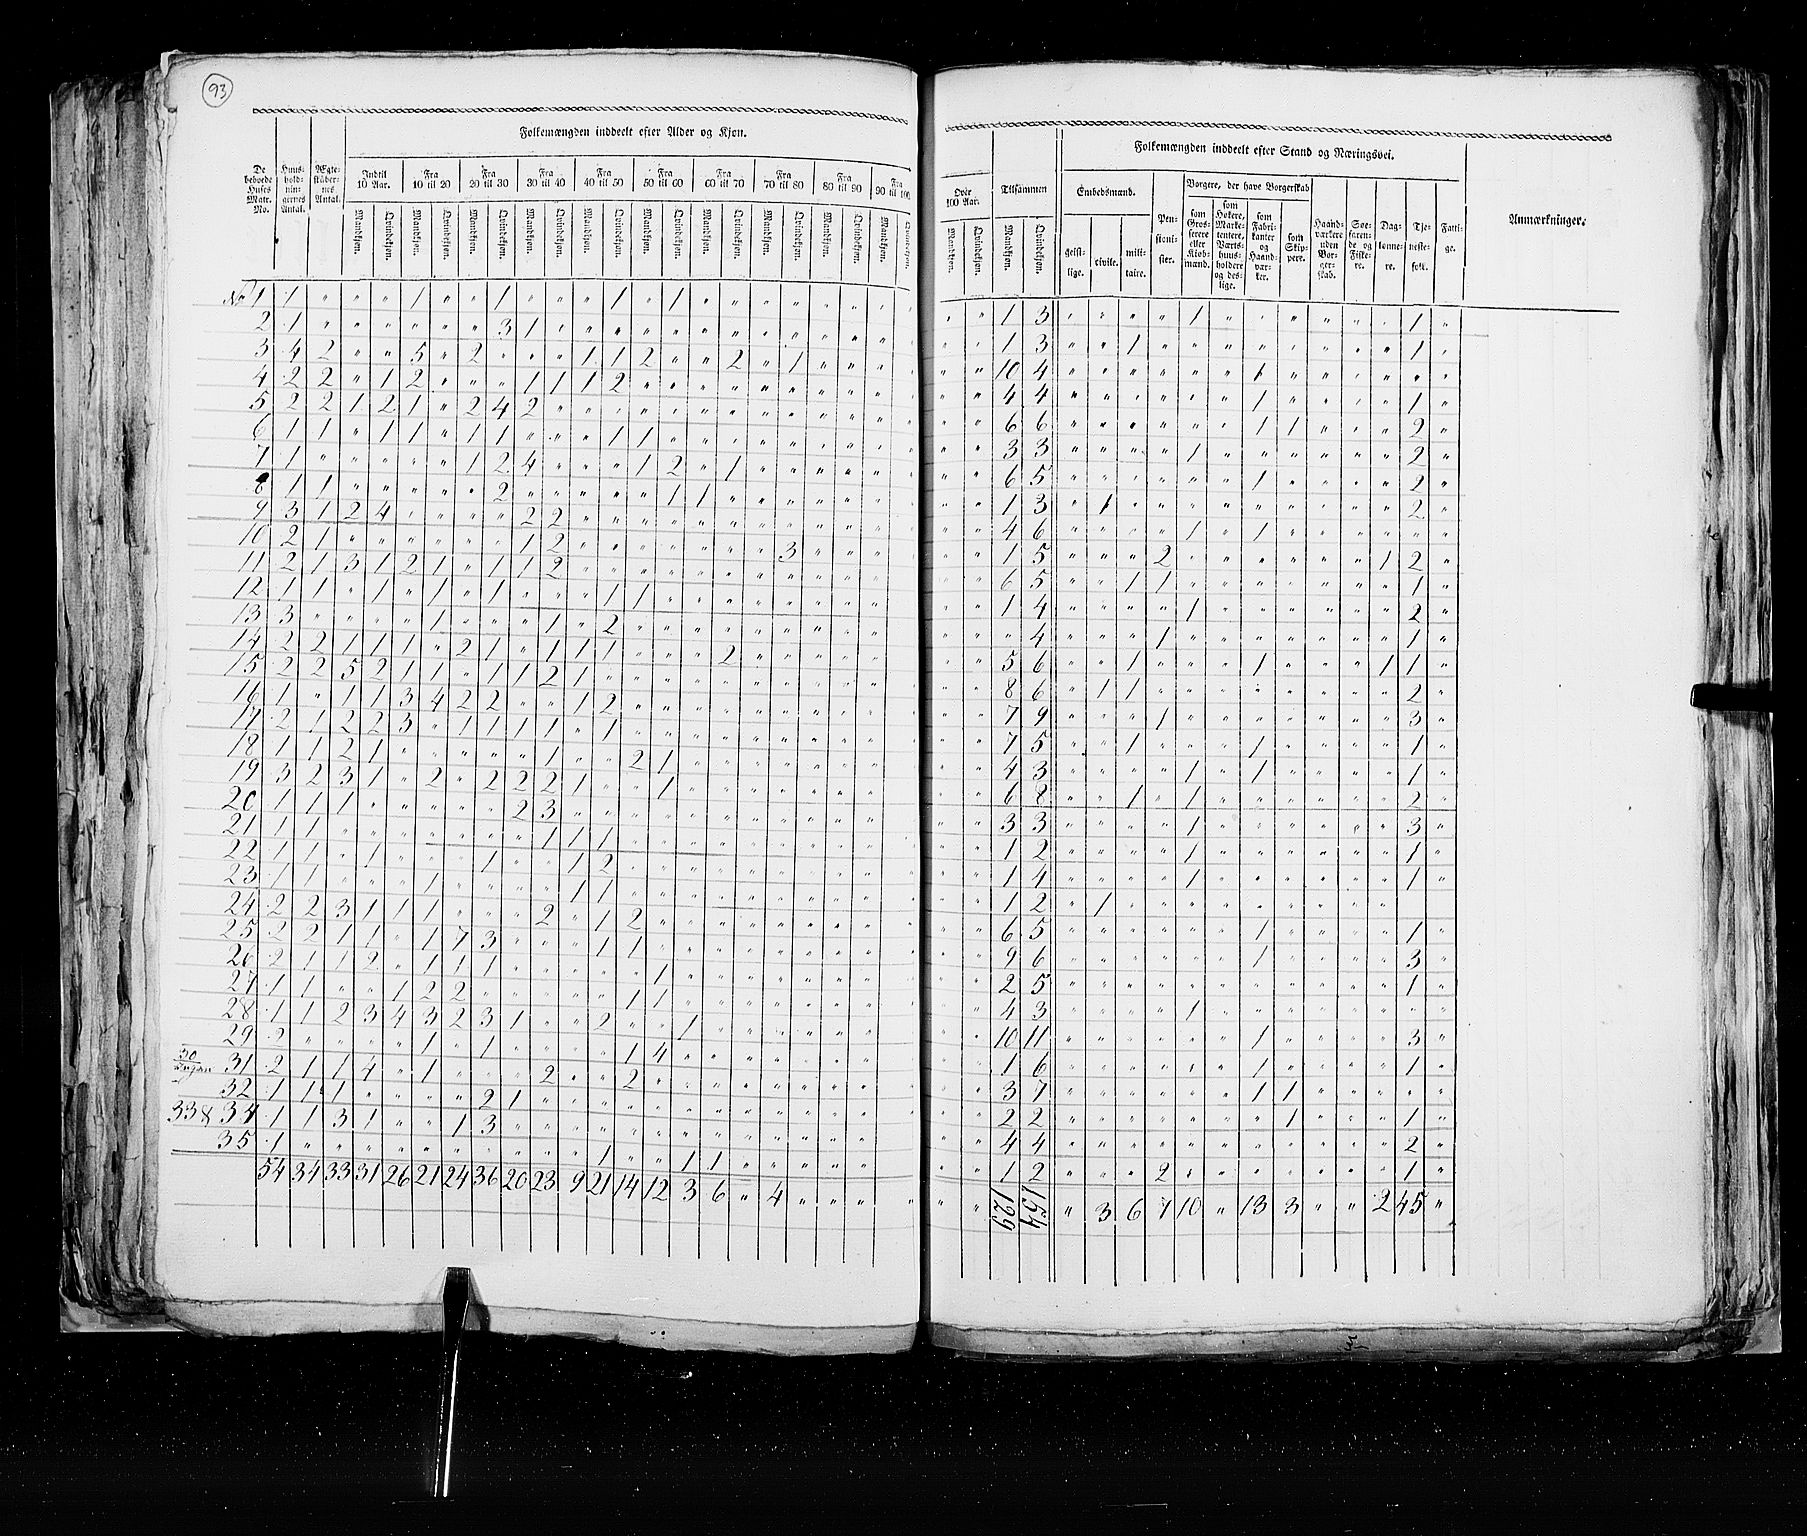 93
Folkemængden inddeelt efter Alder og Kjøn.
De beboede Huses Matr. No.
Huus-hold-nin-gernes Antal.
Ægte-skaber-nes Antal.
Indtil 10 Aar.
Fra 10 til 20
Fra 20 til 30
Fra 30 til 40
Fra 40 til 50
Fra 50 til 60
Fra 60 til 70
Fra 70 til 80
Fra 80 til 90
Fra 90 til 100
Mandkjøn. Qvindekjøn. Mandkjøn. Qvindekjøn. Mandkjøn. Qvindekjøn. Mandkjøn. Qvindekjøn. Mandkjøn. Qvindekjøn. Mandkjøn. Qvindekjøn. Mandkjøn. Qvindekjøn. Mandkjøn. Qvindekjøn. Mandkjøn. Qvindekjøn. Mandkjøn. Qvindekjøn.
No 1 1 " " " 1 " " 1 " " " 1 " 1 " " " " " " " "
2 1 " " " " " " 3 1 " " " " " " " " " " " " "
3 4 2 " " 5 " 2 " " " 1 1 2 " " 2 " 1 " " " "
4 2 2 " 1 2 " " " 1 1 1 2 " " " " " " " " " "
5 2 2 1 2 1 " 2 4 2 " " " " " " " " " " " " "
6 1 1 " 1 1 " 1 1 " " " 1 1 " " " " " " " " "
7 1 " " " " " 1 2 4 " " " 1 2 " 1 " " " " " "
8 1 1 " " " " " 2 " " " " " 1 1 " " " " " " "
9 3 1 2 4 " " " " 2 2 " " " " " " " " " " " "
10 2 1 " " " " " " 1 2 " " " " " " " 3 " " " "
11 2 1 3 1 2 1 " 1 1 2 " " " " " " " " " " " "
12 1 1 " 1 " 1 " 1 " " " 1 1 " " " " " " " " "
13 3 " " " " 1 " " " 1 " 2 " " " " " " " " " "
14 2 2 1 1 1 " 2 1 " 1 1 1 " " " 2 " " " " " "
15 2 2 5 2 1 1 " 1 1 2 1 " " " " " " " " " " "
16 1 " 1 1 3 4 2 2 " " 1 2 " " " " " " " " " "
17 2 1 2 2 3 " 1 1 1 1 " 1 " " " " " " " " " "
18 1 1 2 1 " " " " " 1 " " 2 1 " " " " " " " "
19 3 2 3 1 " 2 " 2 2 2 1 " " 1 " " " " " " " "
20 1 1 1 " " " " " 2 3 " " " " " " " " " " " "
21 1 1 " " " " " " " 1 1 1 " " " " " " " " " "
22 1 1 " 1 " " " 1 " " 1 2 " " " " " " " " " "
23 1 1 " " " 1 " " " " 1 1 " " " " " " " " " "
24 2 2 3 1 1 1 " " " 2 " 1 2 " " " " " " " " "
25 2 2 1 1 " 1 7 3 " " " 1 1 " " " " " " " " "
26 2 1 1 2 " 1 1 1 " " " " " 1 " " " " " " " "
27 1 1 " " 1 2 2 " " " " " 1 1 " " " " " " " "
28 1 1 2 3 4 3 2 3 1 " " 2 " " 1 " " " " " " "
29 2 " " " " 1 " 1 " " " " 1 4 " " " " " " " "
30 31 2 1 1 4 " 1 " " " 2 " " 2 " " " " " " " " "
32 1 1 1 " " " " 2 1 " " " " " " " " " " " " "
33 & 34 1 1 3 1 " " 1 3 " " " " " " " " " " " " " "
35 1 " " " " " " " " " " 1 " " 1 1 " " " " " "
54 34 33 31 26 21 24 36 20 23 9 21 14 12 3 6 " 4 " " " "
Over 100 Aar.
Mandkjøn. Qvindekjøn.
Tilsammen
Mandkjøn. Qvindekjøn.
Folkemængden inddeelt efter Stand og Næringsvei.
Embedsmænd.
geist-lige. civile. mili-taire.
Pen-sioni-ster.
Borgere, der have Borgerskab
som Gros-serere eller Kiøb-mænd.
som Høkere, Marke-tentere, Værts-huus-holdere og des-lige.
som Fabri-kanter og Haand-vær-ker.
som Skip-pere.
Haand-værkere uden Bor-ger-skab.
Søe-faren-de og Fiske-re.
Dag-lønne-re.
Tje-neste-folk.
Fatti-ge.
Anmærkninger.
" " 1 3 " " " " 1 " " " " " " 1 "
" " 1 3 " " 1 " " " " " " " " 1 "
" " 10 4 " " " " " " 1 " " " " " "
" " 4 4 " " " " " " 1 " " " " 1 "
" " 6 6 " " " " " " 1 1 " " " 2 "
" " 3 3 " " " " 1 " " " " " " 2 "
" " 6 5 " " " " " " 1 " " " " 2 "
" " 1 3 " 1 " " " " " " " " " 2 "
" " 4 6 " " " " 1 " 1 " " " " " "
" " 1 5 " " " 2 " " " " " " 1 2 "
" " 6 5 " " 1 1 " " " " " " " 1 "
" " 1 4 " " " " 1 " " " " " " 2 "
" " " 4 " " " 1 " " " " " " " 1 "
" " 5 6 " " 1 " " " 1 " " " 1 1 "
" " 8 6 " 1 1 " " " " " " " " 2 "
" " 7 9 " " " 1 " " " " " " " 3 "
" " 7 5 " " 1 " " " 1 " " " " 1 "
" " 4 3 " " " " 1 " 1 " " " " 1 "
" " 6 8 " " 1 " 1 " " " " " " 2 "
" " 3 3 " " " " 1 " " " " " " 3 "
" " 1 2 " " " " 1 " " " " " " 1 "
" " 1 4 " " " " 1 " " " " " " 1 "
" " 1 2 " 1 " " " " " " " " "
" " 6 5 " " " " " " 1 " " " " 1 "
" " 9 6 " " " " " " 1 " " " " 3 "
" " 2 5 " " " " " " " " " " " 1 "
" " 4 3 " " " " 1 " " " " " " " "
" " 10 11 " " " " " " 1 " " " " 3 "
" " 1 6 " " " " " " 1 " " " " 1 "
" " 3 7 " " " " " " 1 1 " " " " "
" " 2 2 " " " " " " " 1 " " " 1 "
" " 4 4 " " " " " " " " " " " 2 "
" " 1 2 " " " 2 " " " " " " " 1 "
" " 129 154 " 3 6 7 10 " 13 3 " " 2 45 "